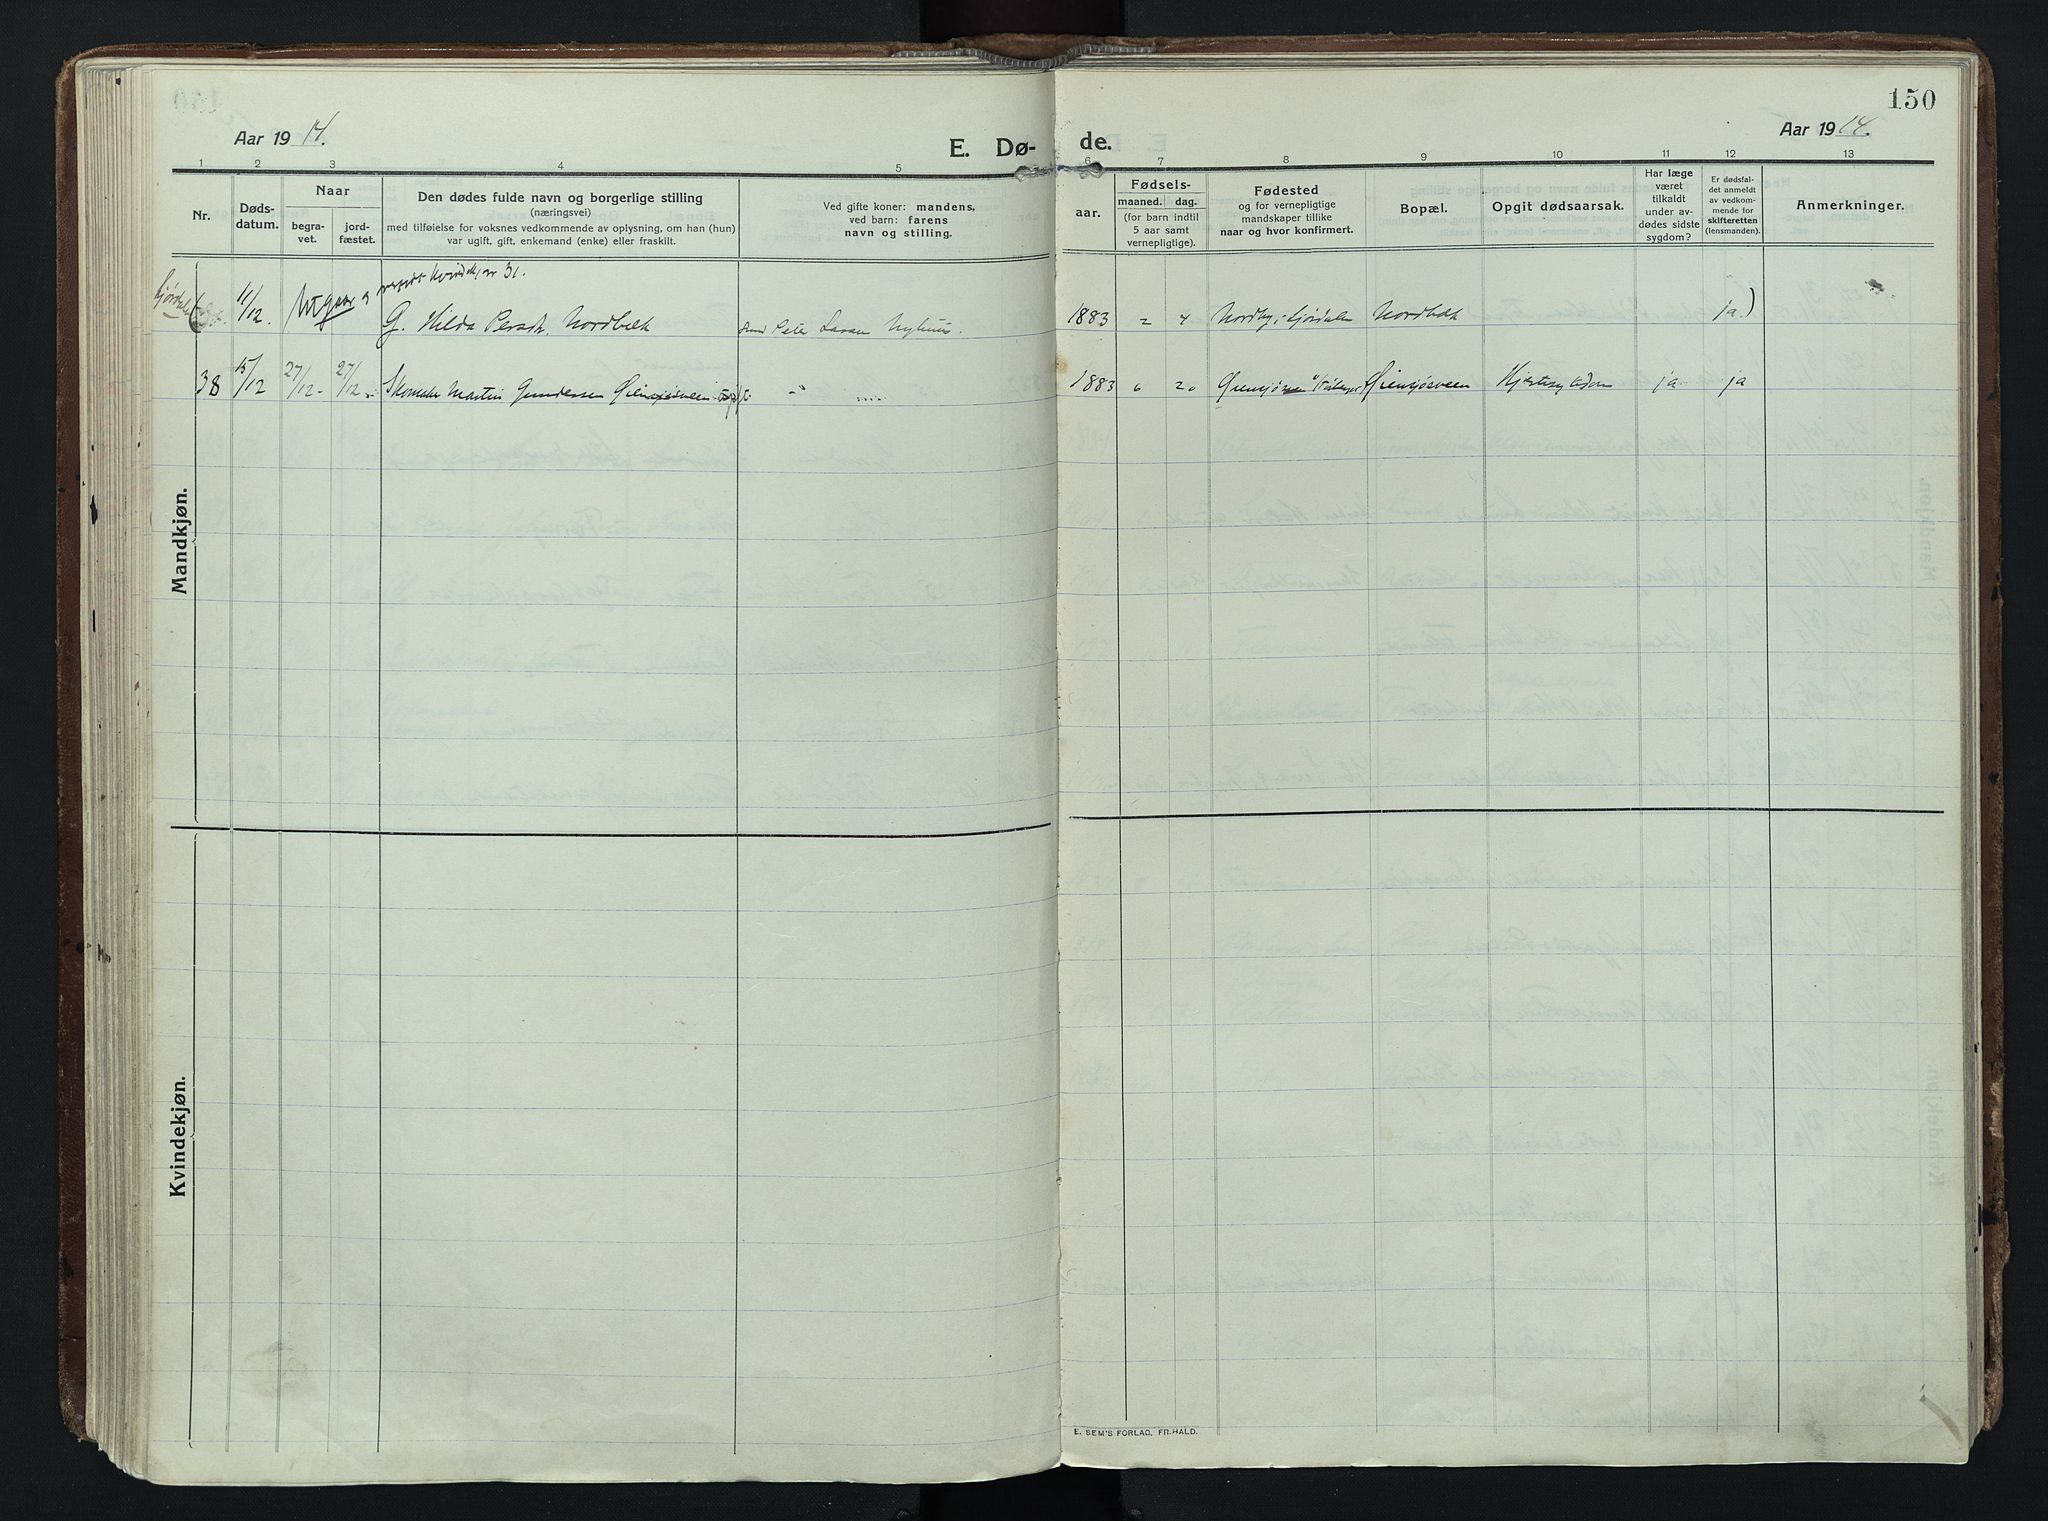 150
Aar 1914.
E. Dø-
de.
Aar 1914.
1 2 3 4 5 6 7 8 9 10 11 12 13
Nr.
Døds-
datum.
Naar
begra-
vet.
jord-
fæstet.
Den dødes fulde navn og borgerlige stilling
(næringsvei)
med tilføielse for voksnes vedkommende av oplysning, om han (hun)
var ugift, gift, enkemand (enke) eller fraskilt.
Ved gifte koner: mandens,
ved barn: farens
navn og stilling.
aar.
Fødsels-
maaned. dag.
(for barn indtil
5 aar samt
vernepligtige).
Fødested
og for vernepligtige
mandskaper tillike
naar og hvor konfirmert.
Bopæl.
Opgit dødsaarsak.
Har læge
været
tilkaldt
under av-
dødes sidste
sygdom?
Er dødsfal-
det anmeldt
av vedkom-
mende for
skifteretten
(lensmanden).
Anmerkninger.
Utgaar nr 31.
11/12. G. Hilda Persdt. Nordbæk Peter Larsen Nyhuus. 1883 2 4 Nordby i Nordbæk ja)
38 15/12 27/12 27/12 Skomaker Martin Gundersen Øiensjøsveen 1883 6 20 Øiensjøsveen Hjertesygdom ja ja
Mandkjøn.
Kvindekjøn.
E. SEM'S FORLAG, FR.HALD.